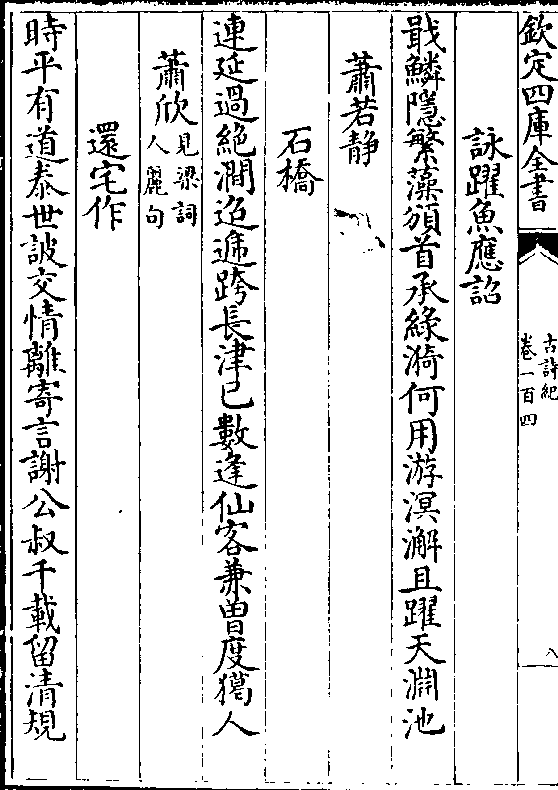 欽定四庫全書
古詩紀
卷一百四
八
詠躍魚應詔
戢鱗隱繁藻頒首承綠漪何用游溟澥且躍天淵池
蕭若静
石橋
連延過絶澗迢遞跨長津已數逢仙客兼曽度獵人
蕭欣見梁詞
人麗句
還宅作
時平有道泰世詖交情離寄言謝公叔千載留清規